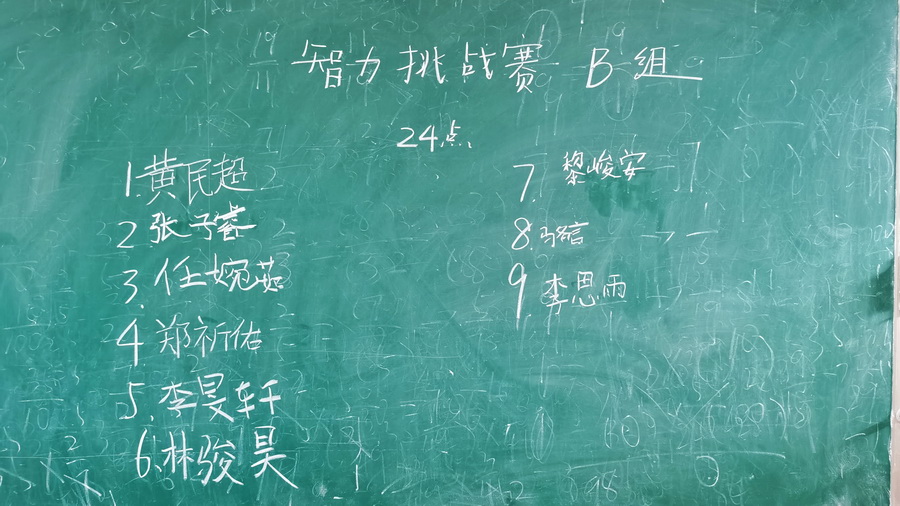 智力挑战赛 B组
24点
1.黄民超
2.张子睿
3.任婉茹
4.郑祈佑
5.李昊轩
6.林骏昊
7.黎峻安
8.骆言
9.李思雨